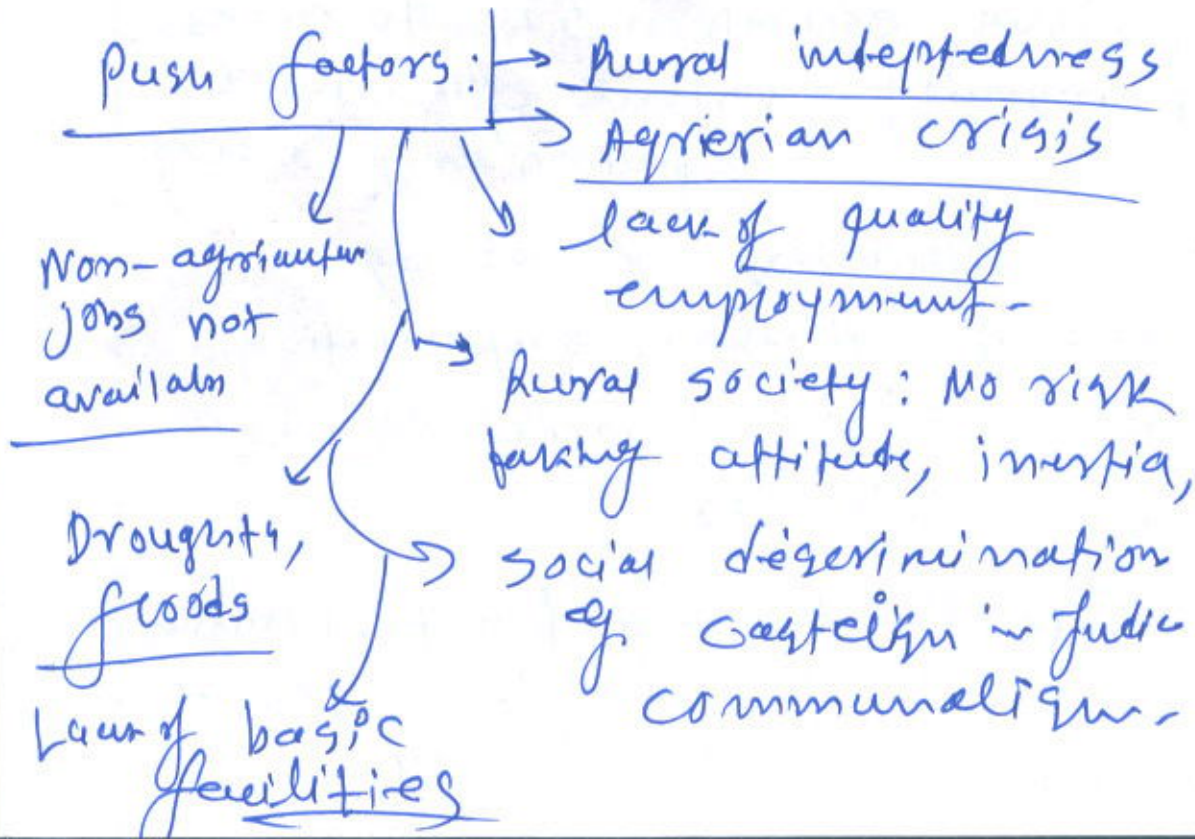 Push factors:
Rural indeptedness
Agrerian crisis
lack of quality
employment-
Non-agriculture
jobs not
available
Rural society: No risk
taking attitude, inertia,
Droughts,
floods
social descrimination
eg. casteism in India
communalism.
Lack of basic
facilities